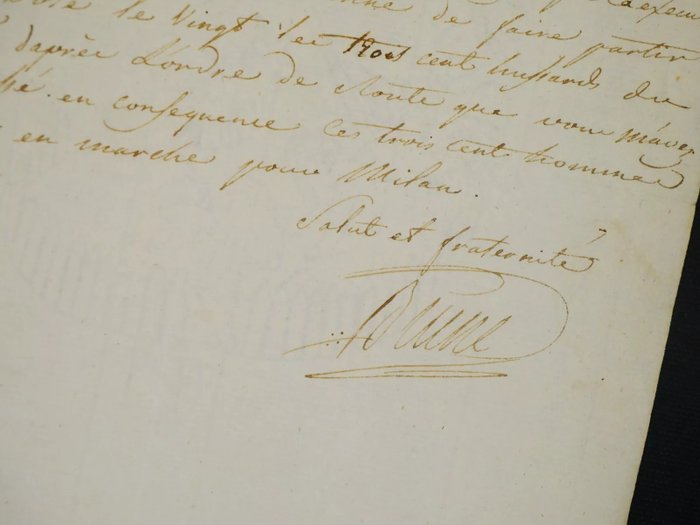 le Vingt de faire partir
d'après L'ordre de Route que vous m'avez
en consequence ces trois cent hommes
en marche pour Milan.
Salut et fraternité
Brune